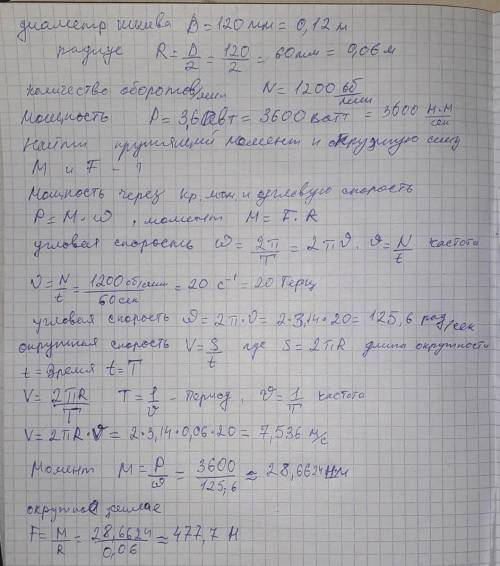 диаметр шкива D = 120 мм = 0,12 м
радиус R = D/2 = 120/2 = 60мм = 0,06 м
количество оборотов/мин N = 1200 об/мин
Мощность P = 3,6 кВт = 3600 ватт = 3600 Н·м/сек
Найти крутящий момент и окружную силу
M и F - ?
Мощность через кр. мом и угловую скорость
P = M·ω, момент M = F·R
угловая скорость ω = 2π/T = 2πϑ. ϑ = N/t частота
ϑ = N/t = 1200 об/мин/60 сек = 20 с⁻¹ = 20 Герц
угловая скорость ϑ = 2π·ϑ = 2·3,14·20 = 125,6 рад/сек
окружная скорость V = S/t где S = 2πR длина окружности
t = Время t = T
V = 2πR/T T = 1/ϑ - период, ϑ = 1/T частота
V = 2πR·ϑ = 2·3,14·0,06·20 = 7,536 м/с
Момент M = P/ω = 3600/125,6 ≈ 28,6624 Нм
окружная
F = M/R = 28,6624/0,06 ≈ 477,7 Н